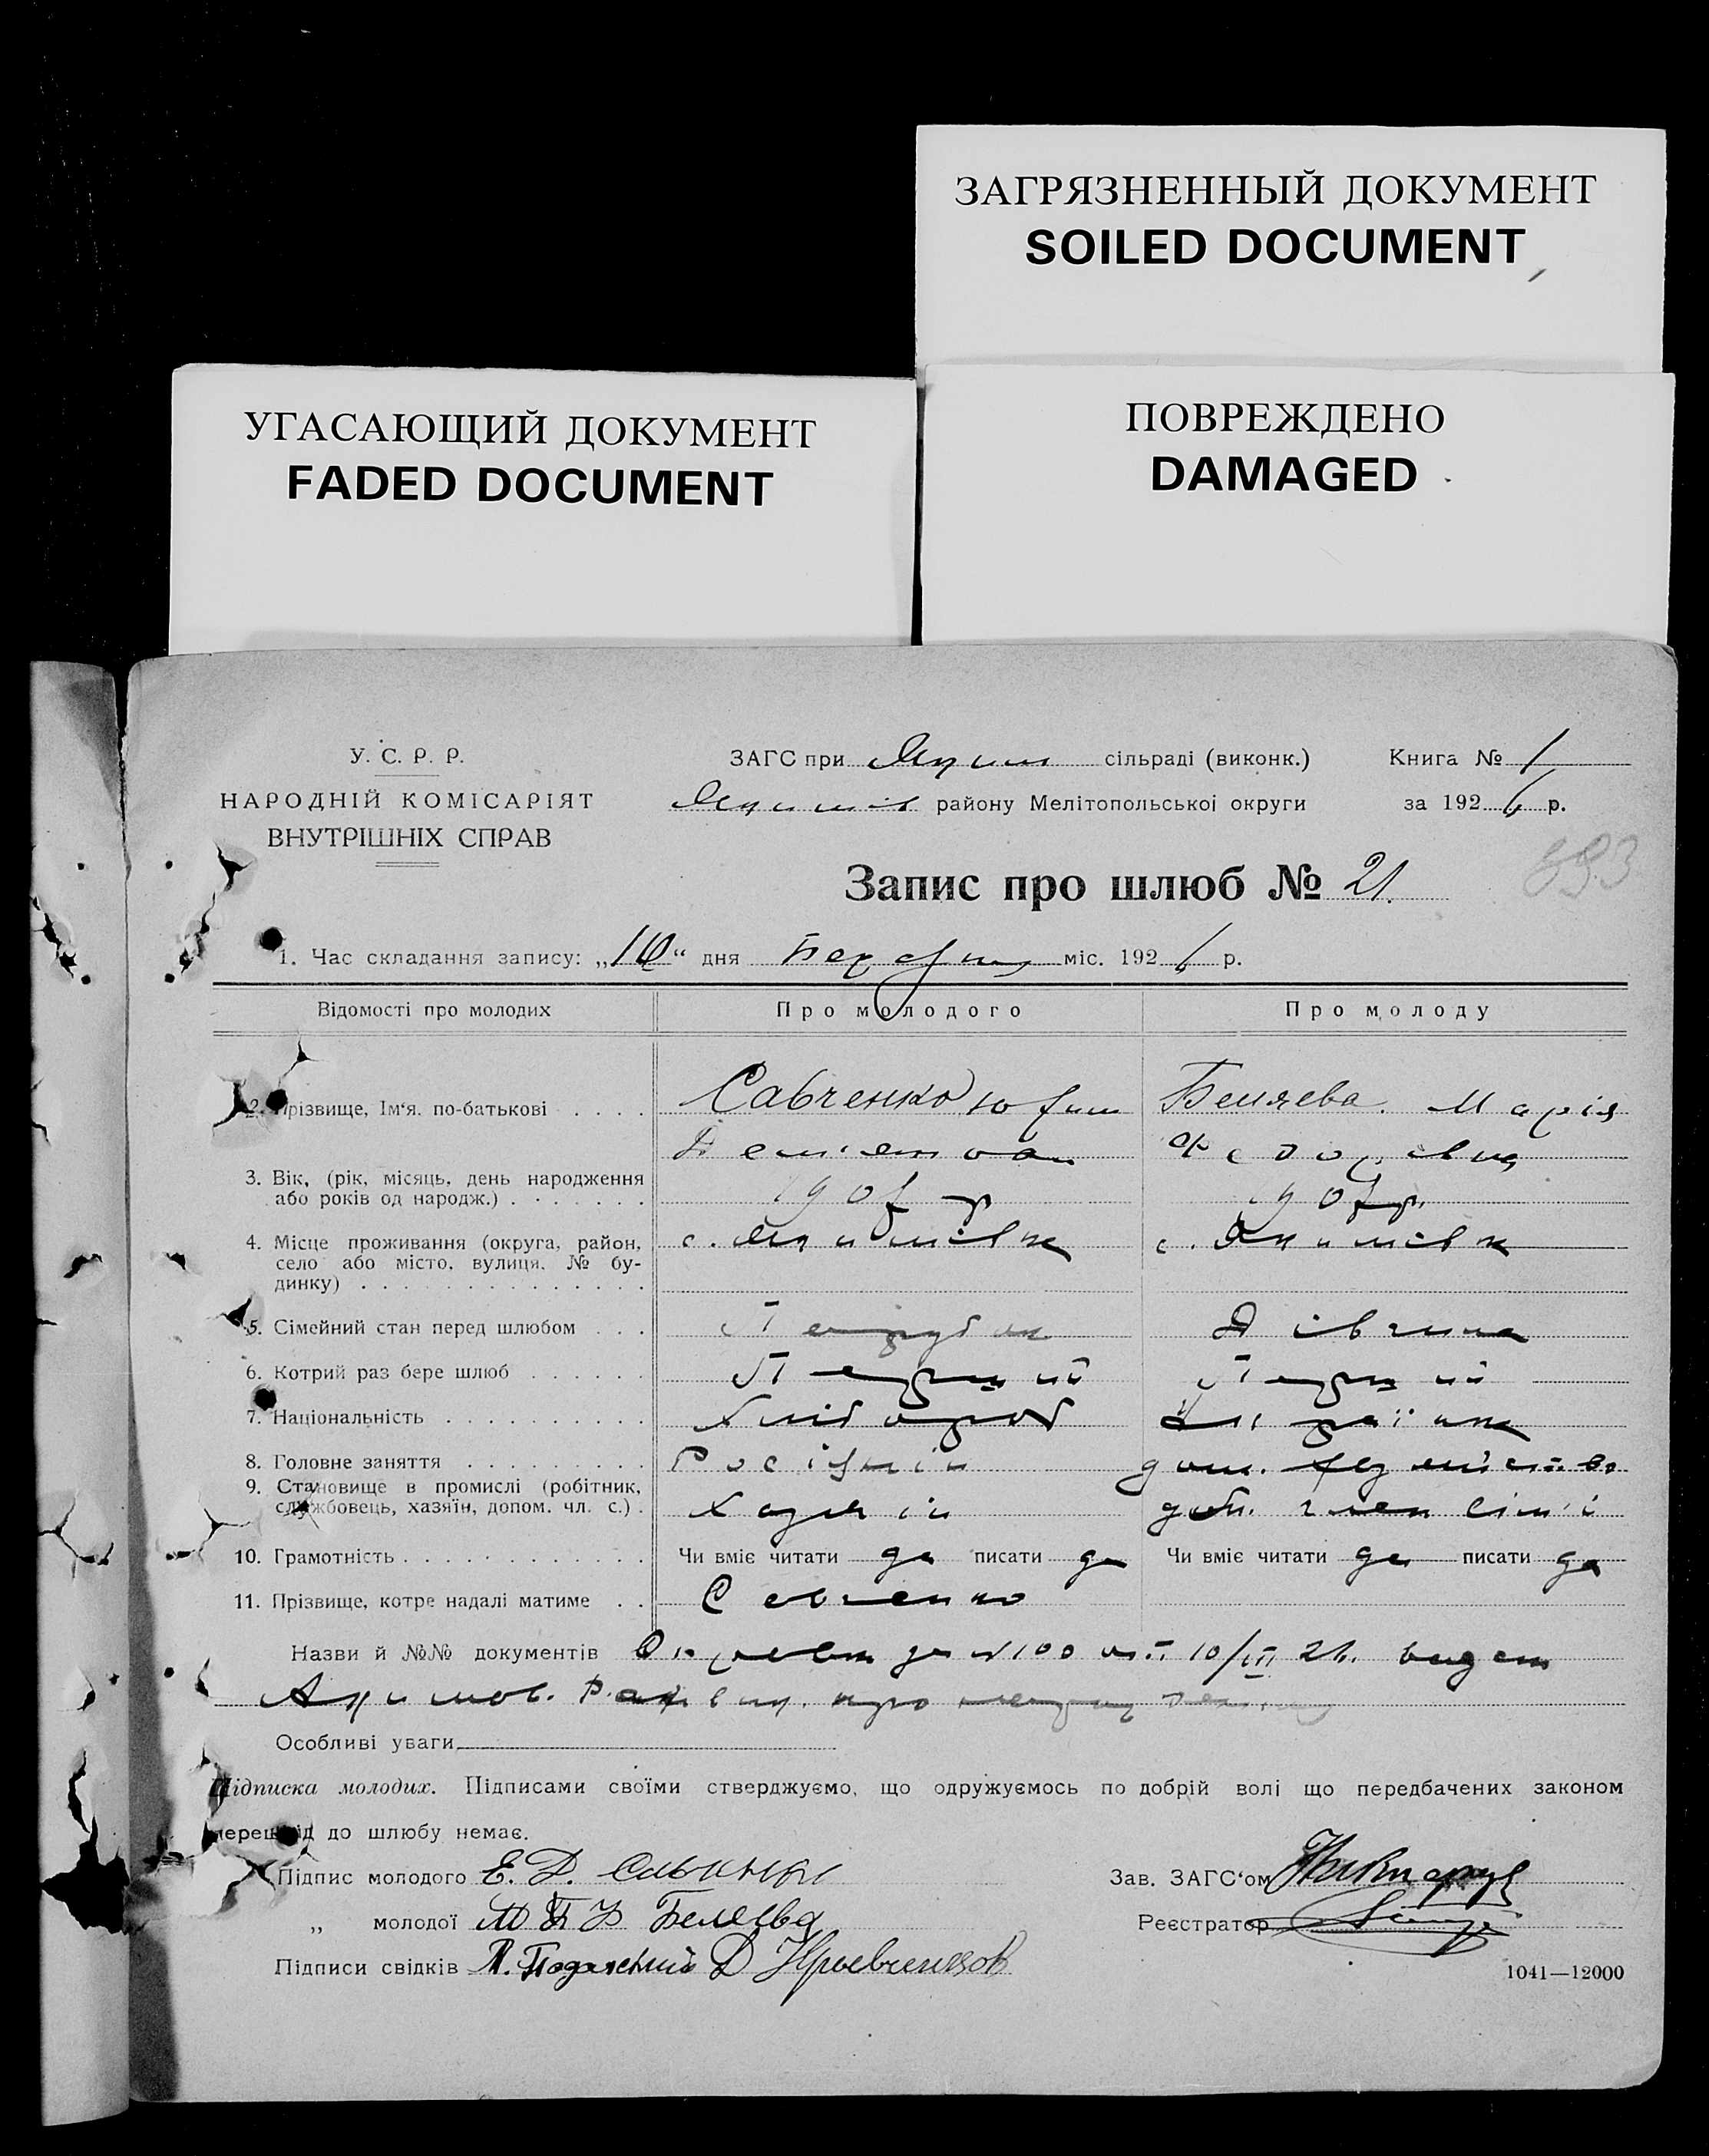 ЗАГРЯЗНЕННЫЙ ДОКУМЕНТ
SOILED DOCUMENT
УГАСАЮЩИЙ ДОКУМЕНТ
FADED DOCUMENT
ПОВРЕЖДЕНО
DAMAGED
У. С. Р. Р.
НАРОДНІЙ КОМІСАРІЯТ
ВНУТРІШНІХ СПРАВ
ЗАГС при Яким сільраді (виконк.)
Книга № 1
Якимів району Мелітопольської округи
за 1926 р.
Запис про шлюб № 21.
1. Час складання запису: „10“ дня міс. 1926 р.
Відомості про молодих Про молодого Про молоду
2. Прізвище, Ім‘я, по-батькові . . . . Савченко Юхим Беляева Марія
Федорівна
3. Вік, (рік, місяць, день народження
або років од народж.) . . . . . . . 190 р 190 р.
4. Місце проживання (округа, район, с. Якимівка с. Якимівка
село або місто, вулиця, № бу-
динку) . . . . . . . . . . . . . .
5. Сімейний стан перед шлюбом . . . Парубок Дівчина
6. Котрий раз бере шлюб . . . . . . Перший Перший
7. Національність . . . . . . . . . . Хлібороб Українка
8. Головне заняття . . . . . . . . . дом.
9. Становище в промислі (робітник,
службовець, хазяїн, допом. чл. с.) . Хазяїн доп. член сім'ї
10. Грамотність . . . . . . . . . . . . Чи вміє читати да писати да Чи вміє читати да писати да
11. Прізвище, котре надалі матиме . . Савченко
Назви й №№ документів № 100 від 10/III 26. видан
Акимов. Райвик. про
Особливі уваги
Підписка молодих. Підписами своїми стверджуємо, що одружуємось по добрій волі що передбачених законом
перешкід до шлюбу немає.
Підпис молодого Е. Д. Савченко
Зав. ЗАГС‘ом
„ молодої Беляева
Реєстратор
Підписи свідків
1041—12000